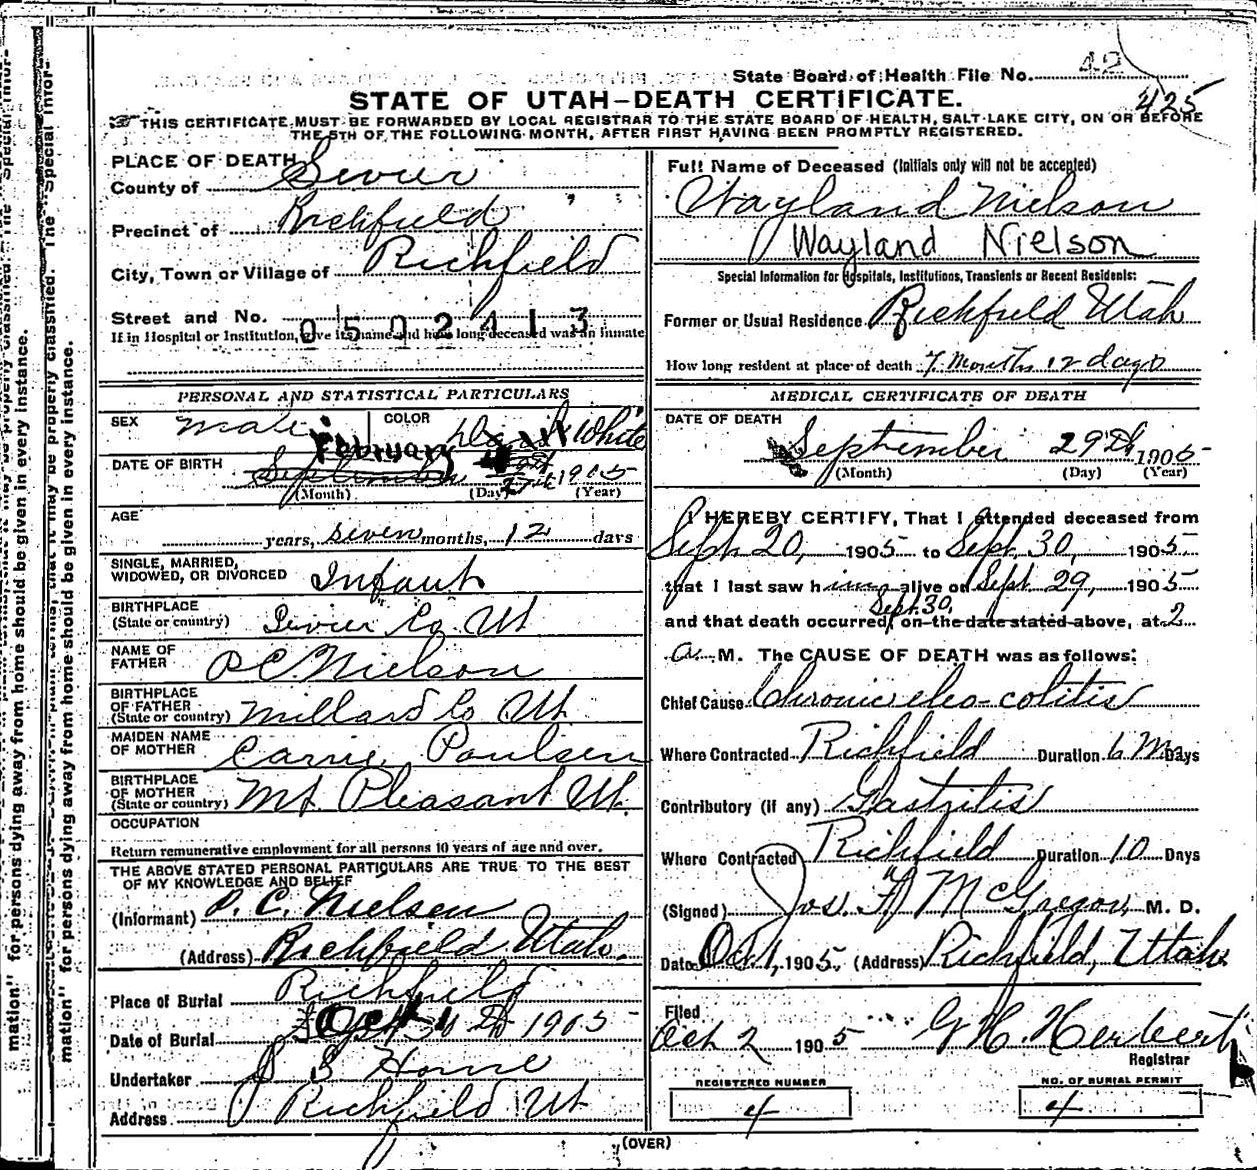 State Board of Health File No. 42
425
STATE OF UTAH—DEATH CERTIFICATE.
THIS CERTIFICATE MUST BE FORWARDED BY LOCAL REGISTRAR TO THE STATE BOARD OF HEALTH, SALT LAKE CITY, ON OR BEFORE
THE 5TH OF THE FOLLOWING MONTH, AFTER FIRST HAVING BEEN PROMPTLY REGISTERED.
PLACE OF DEATH
County of Sevier
Precinct of Richfield
City, Town or Village of Richfield
Street and No.
0502413
If in Hospital or Institution, give its name and how long deceased was an inmate
PERSONAL AND STATISTICAL PARTICULARS
SEX Male COLOR White
DATE OF BIRTH February September 1905
(Month) (Day) (Year)
AGE years, seven months, 12 days
SINGLE, MARRIED,
WIDOWED, OR DIVORCED Infant
BIRTHPLACE
(State or country) Sevier Co. Ut
NAME OF
FATHER P C Nielson
BIRTHPLACE
OF FATHER
(State or country) Millard Co Ut
MAIDEN NAME
OF MOTHER Carrie Poulsen
BIRTHPLACE
OF MOTHER
(State or country) Mt. Pleasant Ut.
OCCUPATION
Return remunerative employment for all persons 10 years of age and over.
THE ABOVE STATED PERSONAL PARTICULARS ARE TRUE TO THE BEST
OF MY KNOWLEDGE AND BELIEF
(Informant) P. C. Nielsen
(Address) Richfield Utah.
Place of Burial Richfield
Date of Burial Oct 1 1905
Undertaker J S Horne
Address Richfield Ut
Full Name of Deceased (Initials only will not be accepted)
Wayland Nielson
Wayland Nielson
Special Information for Hospitals, Institutions, Transients or Recent Residents:
Former or Usual Residence Richfield Utah
How long resident at place of death 7 Months 12 days
MEDICAL CERTIFICATE OF DEATH
DATE OF DEATH
September 29th 1905
(Month) (Day) (Year)
I HEREBY CERTIFY, That I attended deceased from
Sept. 20, 1905 to Sept. 30, 1905
that I last saw him alive on Sept. 29, 1905
Sept. 30,
and that death occurred, on the date stated above, at 2
a. M. The CAUSE OF DEATH was as follows:
Chief Cause Chronic eleo-colitis
Where Contracted Richfield Duration 6 Mo Days
Contributory (if any) Gastritis
Where Contracted Richfield Duration 10 Days
(Signed) Jos. F. McGregor, M. D.
Date Oct 1, 1905. (Address) Richfield, Utah
Filed
Oct 2 1905 G. H. Herbert
Registrar
REGISTERED NUMBER
4
NO. OF BURIAL PERMIT
4
(OVER)
mation" for persons dying away from home should be given in every instance.
mation" for persons dying away from home should be given in every instance.